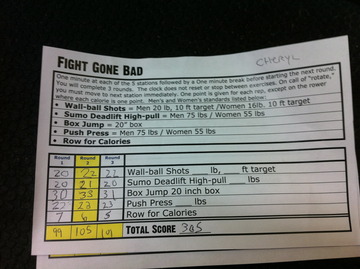 FIGHT GONE BAD
CHERYL
One minute at each of the 5 stations followed by a One minute break before starting the next round.
You will complete 3 rounds. The clock does not reset or stop between exercises. On call of "rotate,"
you must move to next station immediately. One point is given for each rep, except on the rower
where each calorie is one point. Men's and Women's standards listed below:
• Wall-ball Shots = Men 20 lb, 10 ft target /Women 16lb. 10 ft target
• Sumo Deadlift High-pull = Men 75 lbs / Women 55 lbs
• Box Jump = 20" box
• Push Press = Men 75 lbs / Women 55 lbs
• Row for Calories
Round 1 Round 2 Round 3
20 22 22 Wall-ball Shots ___lb, ___ft target
20 21 20 Sumo Deadlift High-pull ___ lbs
30 33 31 Box Jump 20 inch box
23 23 Push Press ___ lbs
7 6 5 Row for Calories
99 105 101 TOTAL SCORE 305